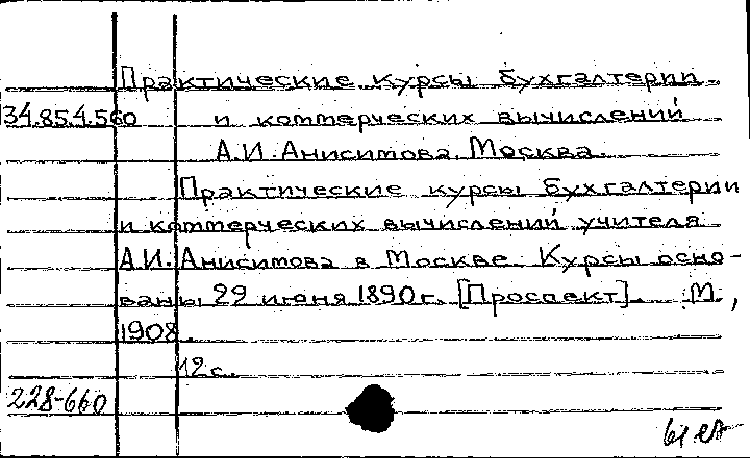 Практические курсы бухгалтерии
34.854.560 и коммерческих вычислений
А.И. Анисимова. Москва.
Практические курсы бухгалтерии
и коммерческих вычислений учителя
А.И. Анисимова в Москве. Курсы осно-
ваны 29 июня 1890 г. [Проспект]. М.,
1908.
12 с.
228-660